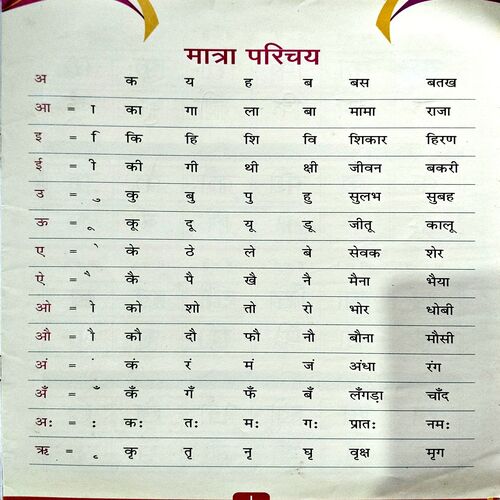 मात्रा परिचय
अ क य ह ब बस बतख
आ = ा का गा ला बा मामा राजा
इ = ि कि हि शि वि शिकार हिरण
ई = ी की गी थी क्षी जीवन बकरी
उ = ु कु बु पु हु सुलभ सुबह
ऊ = ू कू दू यू डू जीतू कालू
ए = े के ठे ले बे सेवक शेर
ऐ = ै कै पै खै नै मैना भैया
ओ = ो को शो तो रो भोर धोबी
औ = ौ कौ दौ फौ नौ बौना मौसी
अं = ं कं रं मं जं अंधा रंग
अँ = ँ कँ गँ फँ बँ लँगड़ा चाँद
अः = ः कः तः मः गः प्रातः नमः
ऋ = ृ कृ तृ नृ घृ वृक्ष मृग